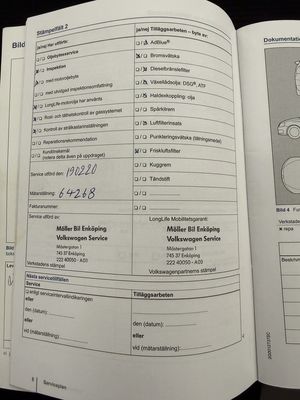 Stämpelfält 2
ja/nej Har utförts:
Oljebytesservice
Inspektion
med motoroljebyte
med utvidgad inspektionsomfattning
LongLife-motorolja har använts
Kontroll av strålkastarinställningen
Reparationsrekommendation
Kundönskemål
(notera detta även på uppdraget)
Service utförd den: 190220
Mätarställning: 64268
Fakturanummer:
Service utförd av:
Möller Bil Enköping
Volkswagen Service
Mästergatan 1
745 37 Enköping
222 40050 - A03
Verkstadens stämpel
ja/nej Tilläggsarbeten – byte av:
AdBlue®
Bromsvätska
Dieselbränslefilter
Växellådsolja: DSG®, ATF
Haldexkoppling: olja
Spårkilrem
Luftfilterinsats
Punkteringsvätska (tätningsmedel)
Friskluftsfilter
Kuggrem
Tändstift
LongLife Mobilitetsgaranti:
Möller Bil Enköping
Volkswagen Service
Mästergatan 1
745 37 Enköping
222 40050 - A03
Volkswagenpartnerns stämpel
Nästa servicetillfällen
Service
enligt serviceintervallindikeringen
eller
den (datum):
eller
vid (mätarställning):
Tilläggsarbeten
den (datum):
eller
vid (mätarställning):
8 Serviceplan
Bild
Dokumentation
Bild 4
repa